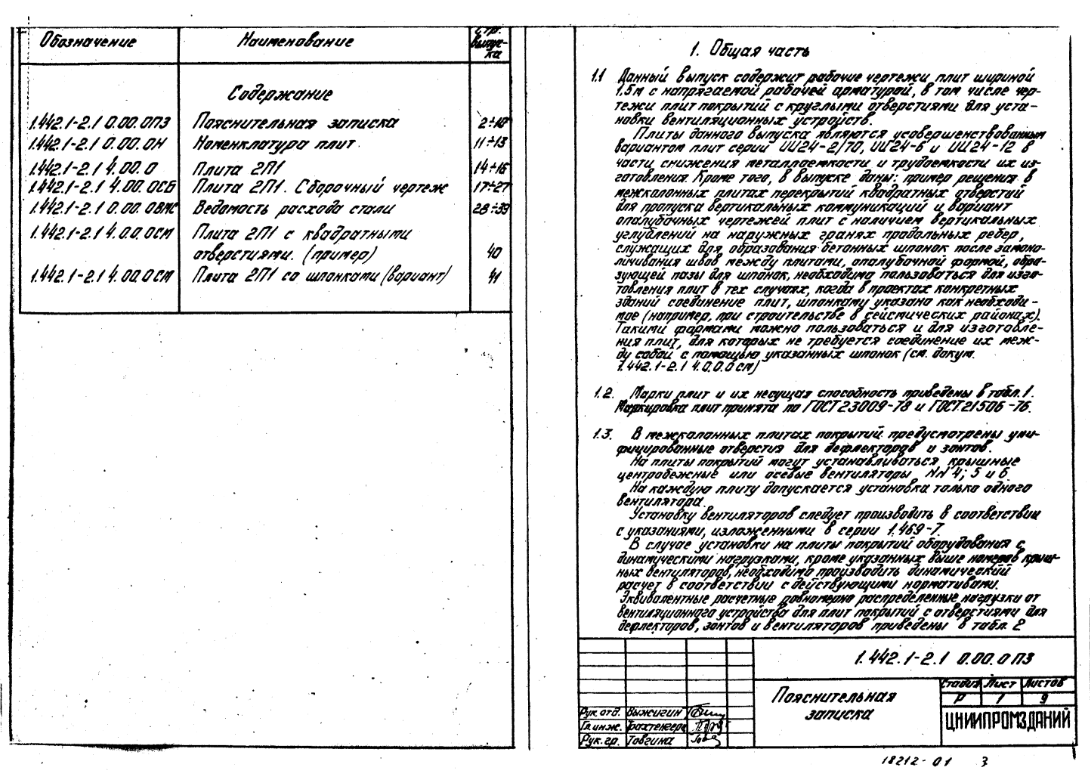 Обозначение Наименование Стр. выпуска
Содержание
1.442.1-2.1 0.00.0ПЗ Пояснительная записка 2÷10
1.442.1-2.1 0.00.0Н Номенклатура плит 11÷13
1.442.1-2.1 4.00.0 Плита 2П1 14÷16
1.442.1-2.1 4.00.0СБ Плита 2П1. Сборочный чертеж 17÷27
1.442.1-2.1 0.00.0ВМС Ведомость расхода стали 28÷39
1.442.1-2.1 4.0.0.0СМ Плита 2П1 с квадратными
отверстиями. (пример) 40
1.442.1-2.1 4.00.0СМ Плита 2П1 со шпонками (вариант) 41
1. Общая часть
1.1 Данный выпуск содержит рабочие чертежи плит шириной
1,5м с напрягаемой рабочей арматурой, в том числе чер-
тежи плит покрытий с круглыми отверстиями для уста-
новки вентиляционных устройств.
Плиты данного выпуска являются усовершенствованным
вариантом плит серии ИИ24-2/70, ИИ24-6 и ИИ24-12 в
части снижения металлоемкости и трудоемкости их из-
готовления. Кроме того, в выпуске даны: пример решения в
межколонных плитах перекрытий квадратных отверстий
для пропуска вертикальных коммуникаций и вариант
опалубочных чертежей плит с наличием вертикальных
углублений на наружных гранях продольных ребер,
служащих для образования бетонных шпонок после замоно-
личивания швов между плитами, опалубочной формой, обра-
зующей пазы для шпонок, необходимо пользоваться для изго-
товления плит в тех случаях, когда в проектах конкретных
зданий соединение плит, шпонками указано как необходи-
мое (например, при строительстве в сейсмических районах).
Такими формами можно пользоваться и для изготовле-
ния плит, для которых не требуется соединение их меж-
ду собой с помощью указанных шпонок (см. докум.
1.442.1-2.1 4.0.0.0СМ)
1.2. Марки плит и их несущая способность приведены в табл.1.
Маркировка плит принята по ГОСТ 23009-78 и ГОСТ 21506-76.
1.3. В межколонных плитах покрытий предусмотрены уни-
фицированные отверстия для дефлекторов и зонтов.
На плиты покрытий могут устанавливаться крышные
центробежные или осевые вентиляторы NN 4; 5 и 6.
На каждую плиту допускается установка только одного
вентилятора.
Установку вентиляторов следует производить в соответствии
с указаниями, изложенными в серии 1.469-7.
В случае установки на плиты покрытий оборудования с
динамическими нагрузками, кроме указанных выше номеров крыш-
ных вентиляторов, необходимо производить динамический
расчет в соответствии с действующими нормативами.
Эквивалентные расчетные равномерно распределенные нагрузки от
вентиляционного устройства для плит покрытий с отверстиями для
дефлекторов, зонтов и вентиляторов приведены в табл. 2
1.442.1-2.1 0.00.0ПЗ
Пояснительная
записка
Стадия Лист Листов
Р 1 9
ЦНИИПРОМЗДАНИЙ
Рук.отд. Выжигин
Гл.инж.
Рук.гр. Товгина
18212-01 3